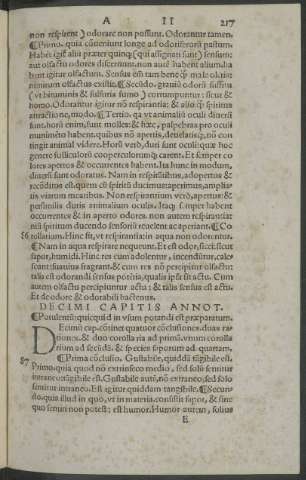 A II 217
non respirent) odorare non possunt. Odorantur tamen.
¶Primo. quia cōueniunt longe ad odoriferorū pastum.
Habēt igit̃ aliū præter quinq; (qui assignati sunt) sensum:
aut olfactu odores discernunt. non autē habent alium: habent
igitur olfactum. Sensus em̄ tam bene q̄ male olentium
olfactus existit. ¶Secūdo. graui odorū
(vt bituminis & sulfuris fumo) corrumpuntur: sicut &
homo. Odorantur igitur nō respirantia: & alio q̄ spiritus
attractione, modo. ¶Tertio. qa vt animaliū oculi diuersi
sunt. horū enim, sunt molles: & hæc, palpebras pro oculi
munimēto habent. quibus nō apertis, deuelatisq;, non contingit
animal videre. Horū verò, duri sunt oculi: quæ hoc
genere sufficulorū cooperculorumq; carent. Et semper colores
apertos & occurrentes habent. Ita hunc in modum,
diuersi sunt odoratus. Nam in respirātibus, adopertus &
recōditus est. quem cū spiritū ducimus aperimus, ampliatis
viarum meatibus. Non respirantium verò, apertus: &
persimilis duris animalium oculis. Itaq; semper habent
occurrentes & in aperto odores. non autem respirantiae
nisi spiritum ducendo sensoriū reuelent acaperiant. ¶Corollatium.
Hinc fit, vt respirantia: in aqua non odorentur.
¶Nam in aqua respirare nequeunt. Et est odor, sicci: sicut
sapor, humidi. Hinc res cum adolentur, incendūtur, calescunt:
suauius fragrant. & cum res nō percipitur olfactu:
talis est odorandi sensus potētia, qualis ipsa sit actu. Cum
autem olfactu percipiuntur actu: & talis sensus est actu.
Et de odore & odorabili hactenus.
DECIMI CAPITIS ANNOT.
¶Potulentū: quicquid in vsum potandi est præparatum.
Decimū cap. cōtinet quatuor cōclusiones. duas rationes.
& duo corollaria ad primā. vnum corollarium
ad secūdā. & species saporum ad quartam.
87 ¶Prima cōclusio. Gustabile, quiddā tāgibile est.
Primo. quia quod nō extrinseco medio, sed solo sentitur
intraneo: tāgibile est. Gustabile autē, nō extraneo, sed solo
sentitur intraneo. Est igitur quiddam tangibile. ¶Secundo.
quia illud in quo, vt in materia, consistit sapor, & sine
quo sentiri non potest; est humor. Humor autem, solius
E